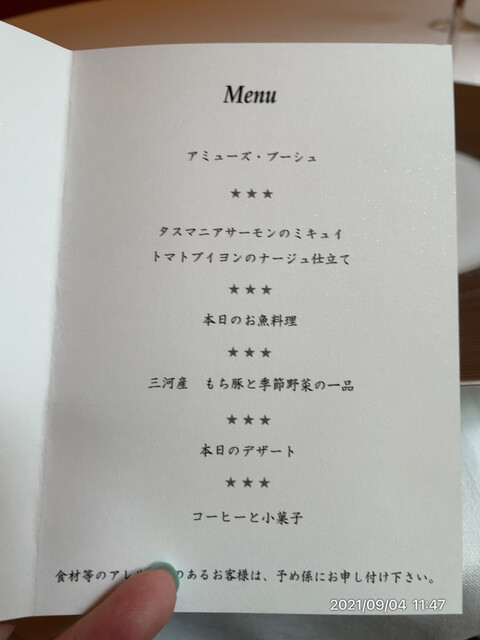 Menu
アミューズ・ブーシュ
★★★
タスマニアサーモンのミキュイ
トマトブイヨンのナージュ仕立て
★★★
本日のお魚料理
★★★
三河産　もち豚と季節野菜の一品
★★★
本日のデザート
★★★
コーヒーと小菓子
食材等のアレ のあるお客様は、予め係にお申し付け下さい。
2021/09/04 11:47